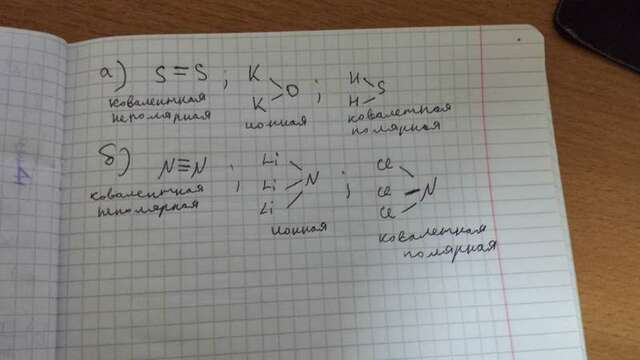 а) S=S ; K K O ; H H S
ковалентная неполярная
ионная
ковалетная полярная
б) N≡N ; Li Li Li N ; Cl Cl Cl N
ковалентная неполярная
ионная
ковалетная полярная